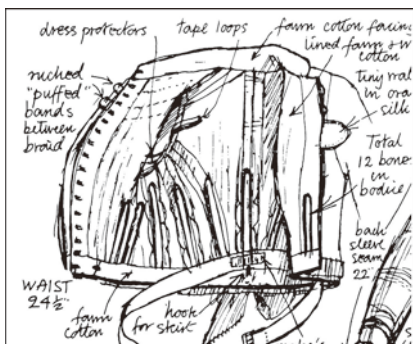 dress protectors
tape loops
fawn cotton facing
lined fawn
cotton
tiny
in
silk
ruched
"puffed"
bands
between
braid
Total
12 bones
in
bodice
back
sleeve
seam
22
WAIST
24½"
fawn
cotton
hook
for skirt